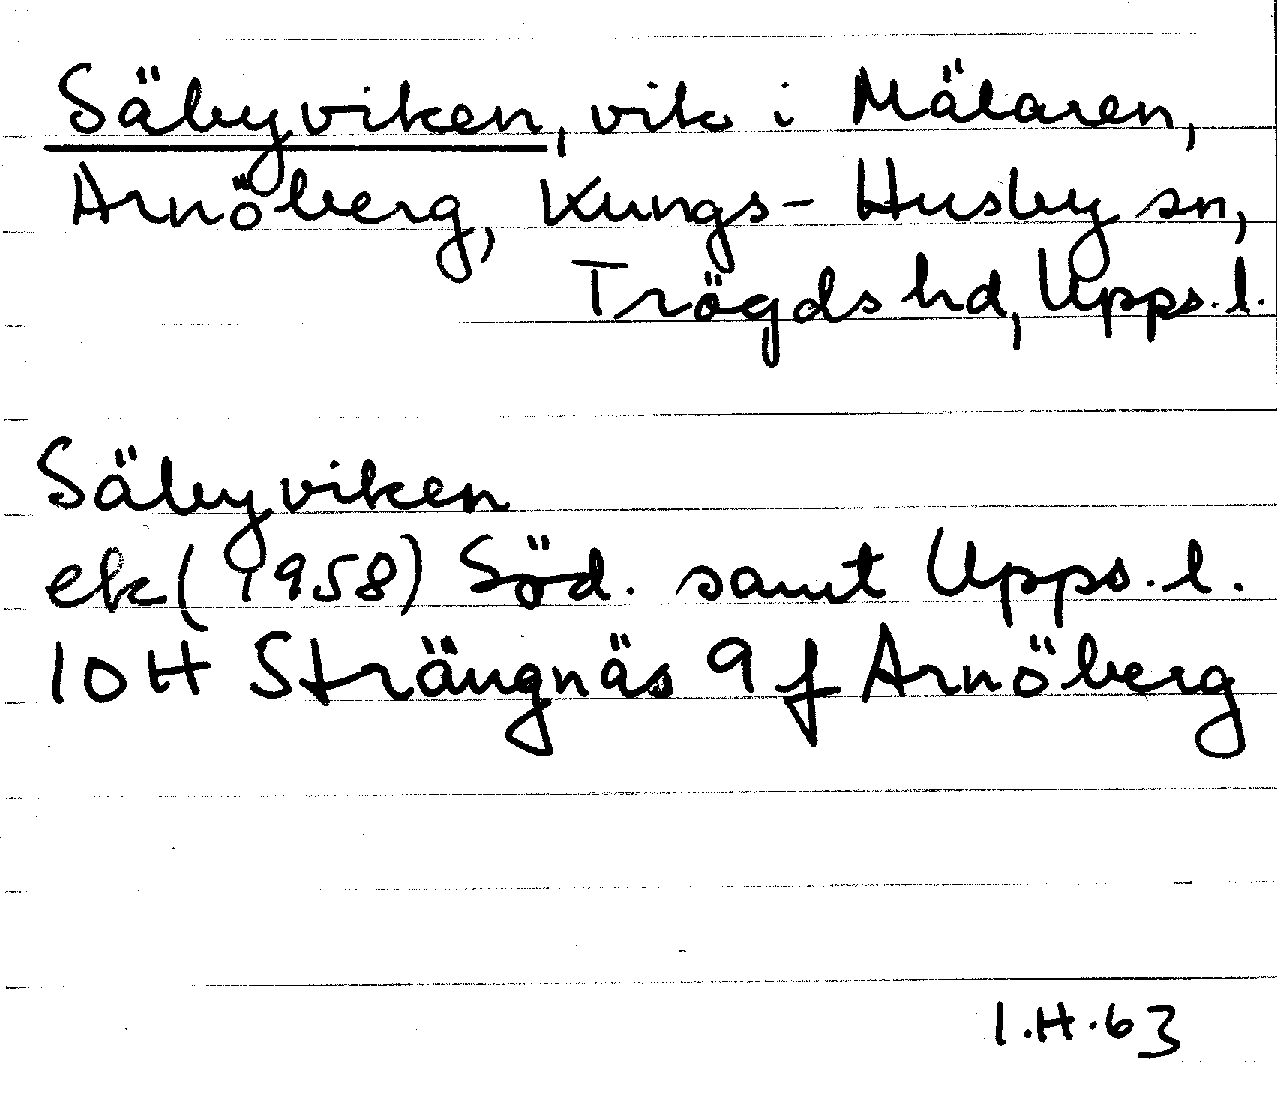 Säbyviken, vik i Mälaren,
Arnöberg, Kungs-Husby sn,
Trögds hd, Upps.l.
Säbyviken
ek (1958) Söd. samt Upps.l.
10H Strängnäs 9f Arnöberg
I.H.63